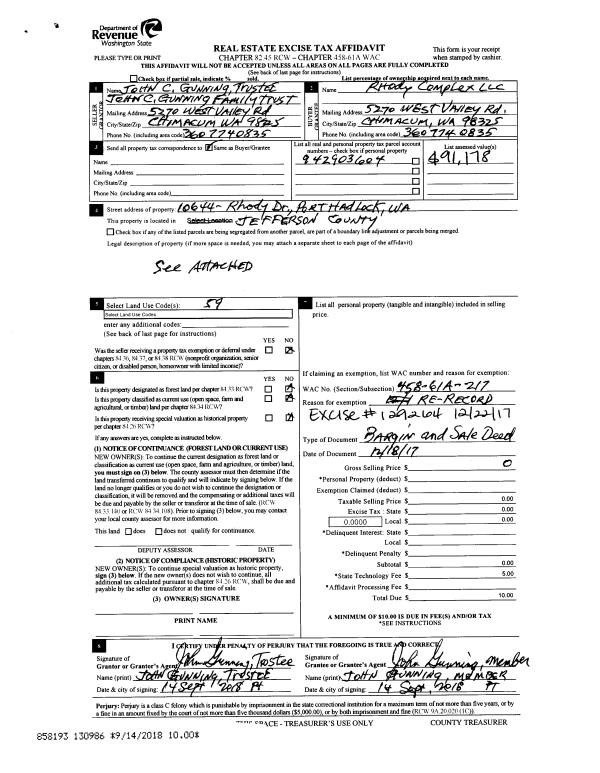 Department of
Revenue
Washington State
REAL ESTATE EXCISE TAX AFFIDAVIT
This form is your receipt
PLEASE TYPE OR PRINT
CHAPTER 82.45 RCW – CHAPTER 458-61A WAC
when stamped by cashier.
THIS AFFIDAVIT WILL NOT BE ACCEPTED UNLESS ALL AREAS ON ALL PAGES ARE FULLY COMPLETED
(See back of last page for instructions)
Check box if partial sale, indicate % sold.
List percentage of ownership acquired next to each name.
1 Name JOHN C. GUNNING, TRUSTEE
JOHN C. GUNNING FAMILY TRUST
SELLER GRANTOR
Mailing Address 5270 WEST VALLEY Rd
City/State/Zip CHIMACUM WA 98325
Phone No. (including area code) 360 774 0835
2 Name Rhody Complex LLC
BUYER GRANTEE
Mailing Address 5270 WEST VALLEY Rd.
City/State/Zip CHIMACUM, WA 98325
Phone No. (including area code) 360 774 0835
3 Send all property tax correspondence to: Same as Buyer/Grantee
Name
Mailing Address
City/State/Zip
Phone No. (including area code)
List all real and personal property tax parcel account
numbers – check box if personal property
942903604
List assessed value(s)
$91,178
4 Street address of property: 10644 - Rhody Dr., PORT HADLOCK, WA
This property is located in Select Location JEFFERSON COUNTY
Check box if any of the listed parcels are being segregated from another parcel, are part of a boundary line adjustment or parcels being merged.
Legal description of property (if more space is needed, you may attach a separate sheet to each page of the affidavit)
See ATTACHED
5 Select Land Use Code(s): 59
Select Land Use Codes
enter any additional codes:
(See back of last page for instructions)
YES NO
Was the seller receiving a property tax exemption or deferral under
chapters 84.36, 84.37, or 84.38 RCW (nonprofit organization, senior
citizen, or disabled person, homeowner with limited income)?
6 YES NO
Is this property designated as forest land per chapter 84.33 RCW?
Is this property classified as current use (open space, farm and
agricultural, or timber) land per chapter 84.34 RCW?
Is this property receiving special valuation as historical property
per chapter 84.26 RCW?
If any answers are yes, complete as instructed below.
(1) NOTICE OF CONTINUANCE (FOREST LAND OR CURRENT USE)
NEW OWNER(S): To continue the current designation as forest land or
classification as current use (open space, farm and agriculture, or timber) land,
you must sign on (3) below. The county assessor must then determine if the
land transferred continues to qualify and will indicate by signing below. If the
land no longer qualifies or you do not wish to continue the designation or
classification, it will be removed and the compensating or additional taxes will
be due and payable by the seller or transferor at the time of sale. (RCW
84.33.140 or RCW 84.34.108). Prior to signing (3) below, you may contact
your local county assessor for more information.
This land does does not qualify for continuance.
DEPUTY ASSESSOR DATE
(2) NOTICE OF COMPLIANCE (HISTORIC PROPERTY)
NEW OWNER(S): To continue special valuation as historic property,
sign (3) below. If the new owner(s) does not wish to continue, all
additional tax calculated pursuant to chapter 84.26 RCW, shall be due and
payable by the seller or transferor at the time of sale.
(3) OWNER(S) SIGNATURE
PRINT NAME
7 List all personal property (tangible and intangible) included in selling
price.
If claiming an exemption, list WAC number and reason for exemption:
WAC No. (Section/Subsection) 458-61A-217
Reason for exemption RE-RECORD
EXCISE # 129264 12/22/17
Type of Document BARGIN and Sale Deed
Date of Document 12/18/17
Gross Selling Price $ 0
*Personal Property (deduct) $
Exemption Claimed (deduct) $
Taxable Selling Price $ 0.00
Excise Tax : State $ 0.00
0.0000 Local $ 0.00
*Delinquent Interest: State $
Local $
*Delinquent Penalty $
Subtotal $ 0.00
*State Technology Fee $ 5.00
*Affidavit Processing Fee $
Total Due $ 10.00
A MINIMUM OF $10.00 IS DUE IN FEE(S) AND/OR TAX
*SEE INSTRUCTIONS
8 I CERTIFY UNDER PENALTY OF PERJURY THAT THE FOREGOING IS TRUE AND CORRECT
Signature of
Grantor or Grantor's Agent John Gunning, Trustee
Name (print) JOHN GUNNING, TRUSTEE
Date & city of signing: 14 Sept 2018 Pt
Signature of
Grantee or Grantee's Agent John Gunning, member
Name (print) JOHN GUNNING, MEMBER
Date & city of signing: 14 Sept, 2018 PT
Perjury: Perjury is a class C felony which is punishable by imprisonment in the state correctional institution for a maximum term of not more than five years, or by
a fine in an amount fixed by the court of not more than five thousand dollars ($5,000.00), or by both imprisonment and fine (RCW 9A.20.020 (1C)).
THIS SPACE - TREASURER'S USE ONLY COUNTY TREASURER
858193 130986 *9/14/2018 10.00*